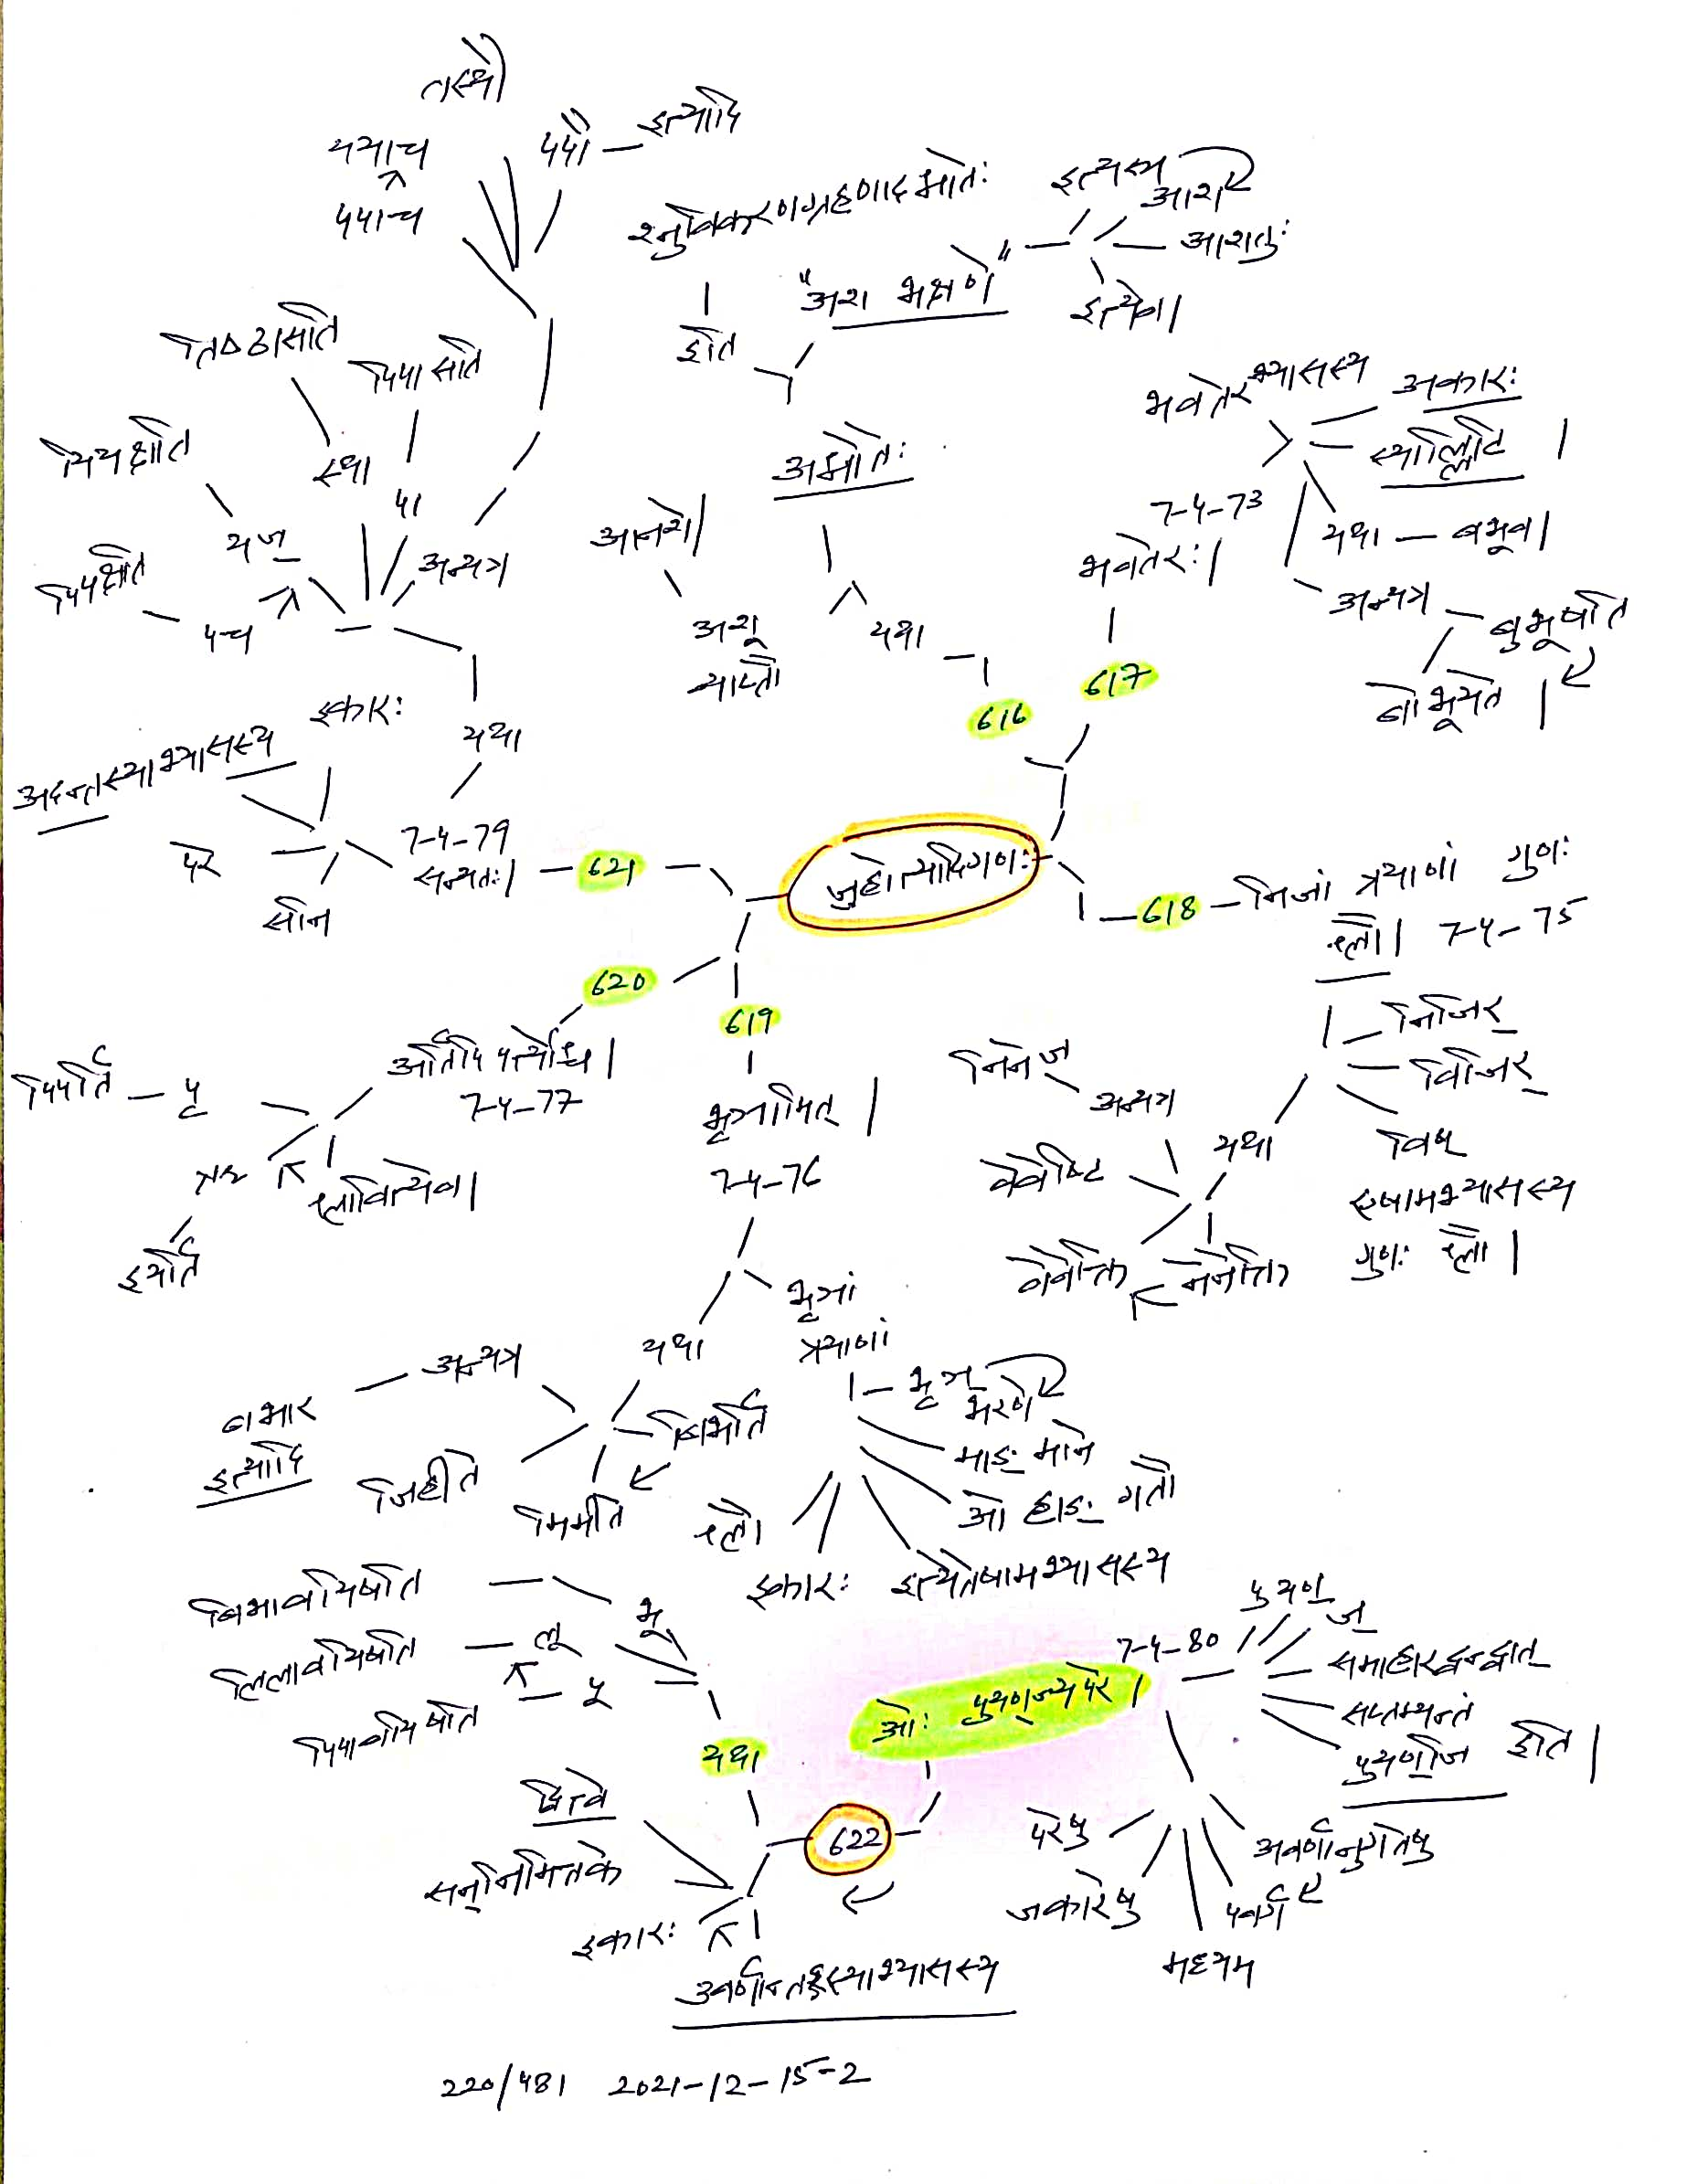 तस्थौ
ययाच
पपाच
पपौ — इत्यादि
श्नुविकरणग्रहणाद भोतः
इति
"अश भक्षणे"
इत्यस्य
आश
आशतुः
इत्येव।
तिष्ठासति
पिपासति
यियक्षति
पिपक्षति
स्था
पा
यज्
पच
अन्यत्र
अश्नोतेः
आनशे।
अशू
व्याप्तौ
यथा
616
617
भवतेरभ्यासस्य
अकारः
स्याल्लिटि ।
7-4-73
भवतेरः।
यथा — बभूव।
अन्यत्र
बुभूषति
बोभूयते ।
अदन्तस्याभ्यासस्य
इकारः
यथा
परे
सनि
7-4-79
सन्यतः।
621
जुहोत्यादिगणः
618
निजां त्रयाणां गुणः
श्लौ। 7-4-75
निजिर्
विजिर्
विष्
एषामभ्यासस्य
गुणः श्लौ ।
यथा
अन्यत्र
निनेज
वेवेष्टि
वेवेक्ति
नेनेक्ति
620
अर्तिपिपर्त्योश्च।
7-4-77
पिपर्ति — पृ
इयर्ति
श्लावित्येव।
619
भृञामित् ।
7-4-76
भृञां
त्रयाणां
यथा
अन्यत्र
बभार
इत्यादि
जिहीते
मिमीते
बिभर्ति
भृञ्
भरणे
माङ् माने
ओ हाङ् गतौ
इत्येतेषामभ्यासस्य
इकारः
श्लौ
बिभावयिषति
भू
लिलावयिषति
लू
पिपावयिषति
पू
यथा
ओः पुयण्ज्यपरे।
7-4-80
पुयण्
ज्
समाहारद्वन्द्वात्
सप्तम्यन्तं
पुयण्जि इति।
622
द्वित्वे
सन्निमित्तके
इकारः
उवर्णान्तस्याभ्यासस्य
परेषु
जकारेषु
मध्यम
पवर्ग
अवर्णानुगतेषु
220/481 2021-12-15-2